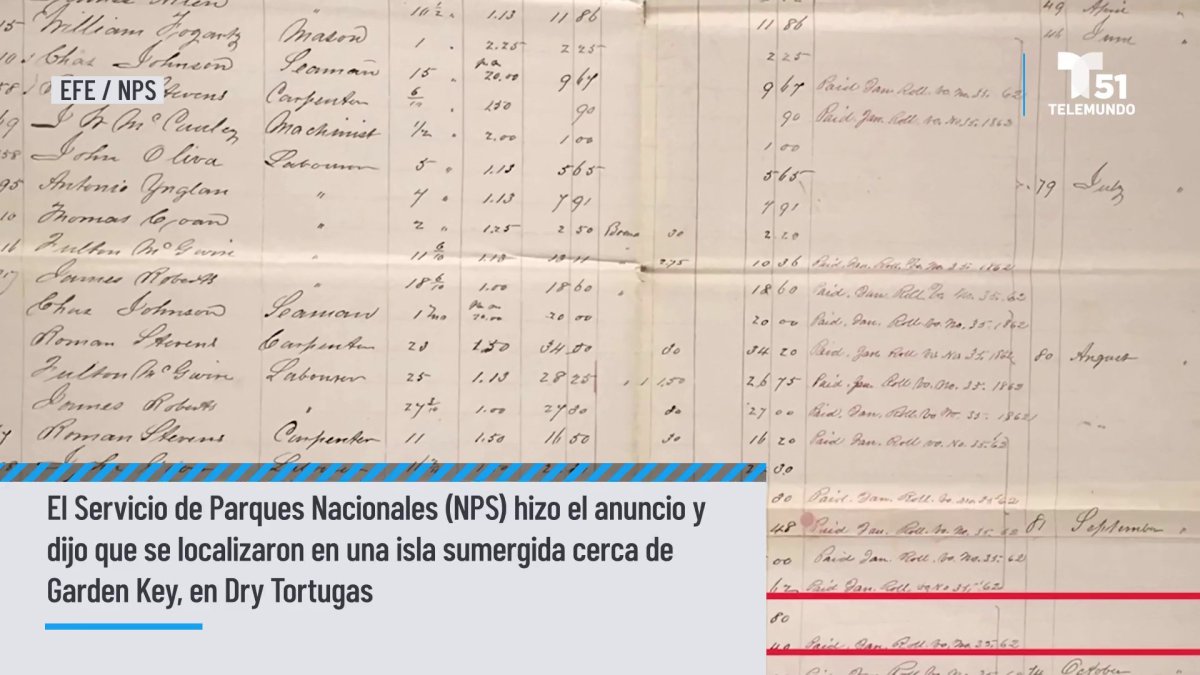 11 86
49 April "
15 William Fogarty Mason 1 " 2.25 2 25 2 25
46 June "
Chas Johnson Seaman 15 " 20.00 9 67 9 67 Paid Jan. Roll. Vo. No. 35. 62
EFE / NPS
T 51
TELEMUNDO
Stevens Carpenter 6/10 " 1.50 90 90 Paid Jan. Roll Vo. No. 35. 1862
69 Machinist 1/2 " 2.00 1 00 1 00
58 John Oliva Labourer 5 " 1.13 5 65 5 65
79 July "
95 Antonio Ynglan " 7 " 1.13 7 91 7 91
10 Thomas " 2 " 1.25 2 50 30 2 20
16 Fulton McGuire " 11 6/10 " 1.13 13 11 " 2.75 10 36 Paid Jan. Roll. Vo. No. 35. 1862
James Roberts " 18 6/10 1.00 18 60 " 18 60 Paid. Jan. Roll Vo. No. 35. 62
Chas Johnson Seaman 20.00 20 00 20 00 Paid. Jan. Roll. Vo. No. 35. 1862
Roman Stevens Carpenter 23 1.50 34 50 30 34 20 Paid. Jan. Roll Vo No 35. 1862
80 August "
Fulton McGuire Labourer 25 1.13 28 25 " 1.50 26 75 Paid. Jan. Roll. Vo. No. 35. 1862
James Roberts " 27 3/10 1.00 27 30 30 27 00 Paid. Jan. Roll Vo No. 35. 1862
Roman Stevens Carpenter 11 1.50 16 50 30 16 20 Paid Jan. Roll. Vo. No. 35. 62
30
80 Paid. Jan. Roll. Vo. No. 35. 62
48 Paid Jan. Roll. Vo. No. 35. 62 81 September "
00 Paid Jan. Roll. Vo. No. 35. 62
62 Paid. Jan. Roll. Vo. No. 35. 62
80
40 Paid Jan. Roll. Vo. No. 35. 62
October
El Servicio de Parques Nacionales (NPS) hizo el anuncio y
dijo que se localizaron en una isla sumergida cerca de
Garden Key, en Dry Tortugas